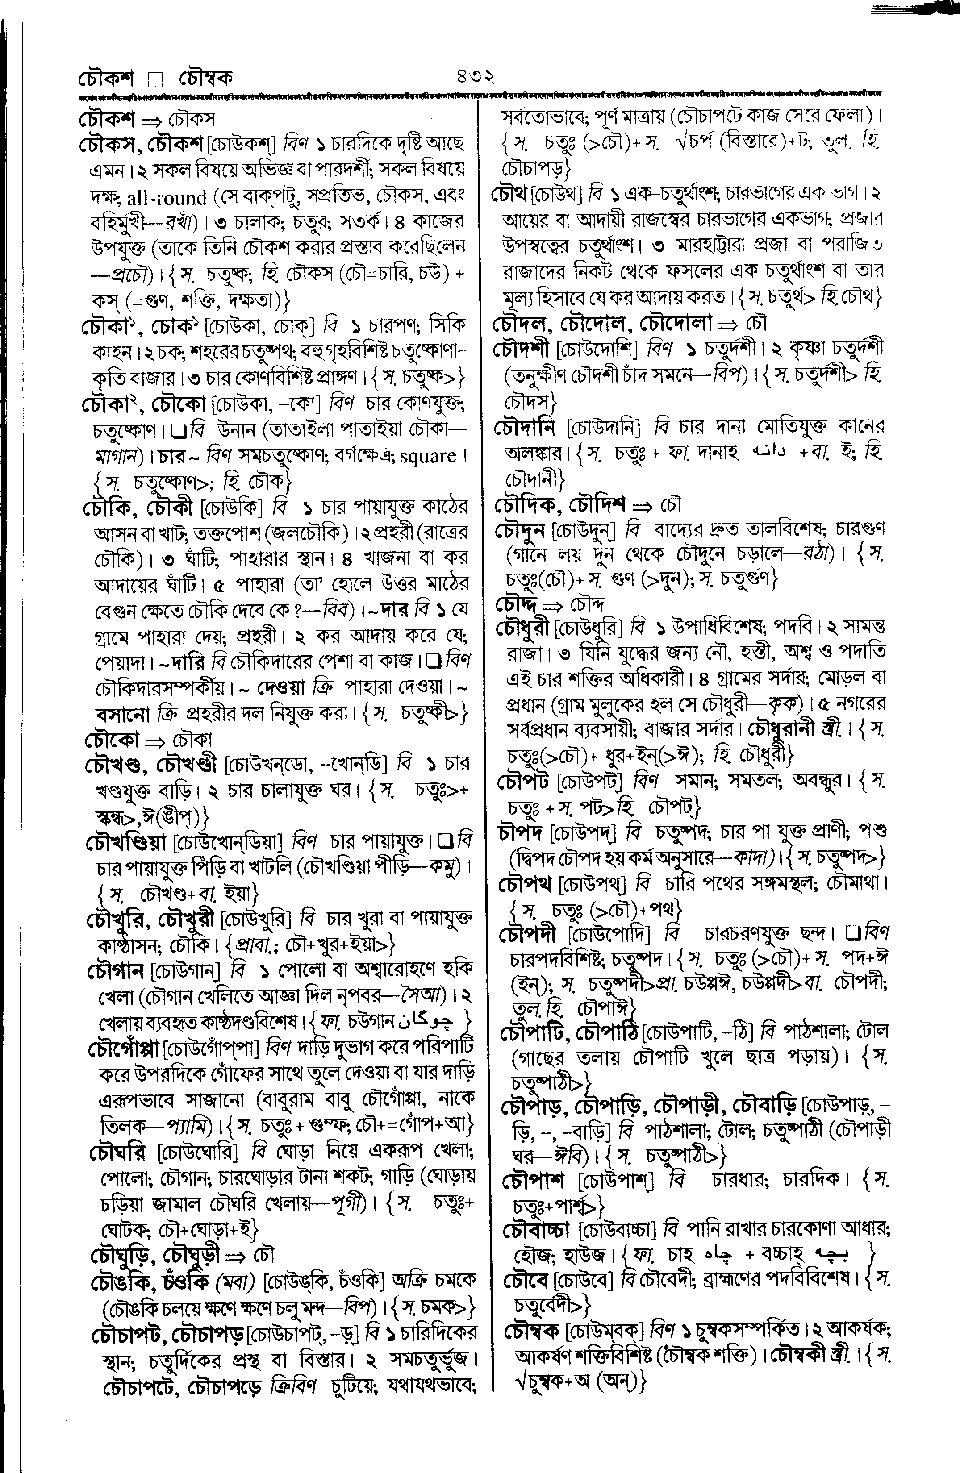 চৌকশ □ চৌম্বক
৪৩২
চৌকশ ⇒ চৌকস
চৌকস, চৌকশ [চোউকশ্] বিণ ১ চারদিকে দৃষ্টি আছে
এমন। ২ সকল বিষয়ে অভিজ্ঞ বা পারদর্শী; সকল বিষয়ে
দক্ষ; all-round (সে বাকপটু, সপ্রতিভ, চৌকস, এবং
বহির্মুখী—রখাঁ)। ৩ চালাক; চতুর; সতর্ক। ৪ কাজের
উপযুক্ত (তাকে তিনি চৌকশ করার প্রস্তাব করেছিলেন
—প্রচৌ)। {স. চতুষ্ক; হি. চৌকস (চৌ=চারি, চউ) +
কস্ (=গুণ, শক্তি, দক্ষতা)}
চৌকা১, চৌক১ [চোউকা, চোক্] বি ১ চারপণ; সিকি
কাহন। ২ চক; শহরের চতুষ্পথ; বহু গৃহবিশিষ্ট চতুষ্কোণা-
কৃতি বাজার। ৩ চার কোণবিশিষ্ট প্রাঙ্গণ। {স. চতুষ্ক>}
চৌকা২, চৌকো [চোউকা, -কো] বিণ চার কোণযুক্ত;
চতুষ্কোণ। ❑ বি উনান (তাতাইলা পাতাইয়া চৌকা—
মাগান)। চার~ বিণ সমচতুষ্কোণ; বর্গক্ষেত্র; square।
{স. চতুষ্কোণ>; হি. চৌক}
চৌকি, চৌকী [চোউকি] বি ১ চার পায়াযুক্ত কাঠের
আসন বা খাট; তক্তপোশ (জলচৌকি)। ২ প্রহরী (রাত্রের
চৌকি)। ৩ ঘাঁটি; পাহারার স্থান। ৪ খাজনা বা কর
আদায়ের ঘাঁটি। ৫ পাহারা (তা হোলে উত্তর মাঠের
বেগুন ক্ষেতে চৌকি দেবে কে?—বিব)। ~দার বি ১ যে
গ্রামে পাহারা দেয়; প্রহরী। ২ কর আদায় করে যে;
পেয়াদা। ~দারি বি চৌকিদারের পেশা বা কাজ। ❑ বিণ
চৌকিদারসম্পর্কীয়। ~ দেওয়া ক্রি পাহারা দেওয়া। ~
বসানো ক্রি প্রহরীর দল নিযুক্ত করা। {স. চতুষ্কী>}
চৌকো ⇒ চৌকা
চৌখণ্ড, চৌখণ্ডী [চোউখন্‌ডো, -খোন্‌ডি] বি ১ চার
খণ্ডযুক্ত বাড়ি। ২ চার চালাযুক্ত ঘর। {স. চতুঃ>+
স্কন্ধ>,ঈ(ঙীপ্)}
চৌখণ্ডিয়া [চোউখোন্‌ডিয়া] বিণ চার পায়াযুক্ত। ❑ বি
চার পায়াযুক্ত পিঁড়ি বা খাটলি (চৌখণ্ডিয়া পীড়ি—কমু)।
{স. চৌখণ্ড+বা. ইয়া}
চৌখুরি, চৌখুরী [চোউখুরি] বি চার খুরা বা পায়াযুক্ত
কাষ্ঠাসন; চৌকি। {প্রাবা.; চৌ+খুর+ইয়া>}
চৌগান [চোউগান্] বি ১ পোলো বা অশ্বারোহণে হকি
খেলা (চৌগান খেলিতে আজ্ঞা দিল নৃপবর—সৈআ)। ২
খেলায় ব্যবহৃত কাষ্ঠদণ্ডবিশেষ। {ফা. চউগান چوگان }
চৌগোঁপ্পা [চোউগোঁপ্‌পা] বিণ দাড়ি দুভাগ করে পরিপাটি
করে উপরদিকে গোঁফের সাথে তুলে দেওয়া বা যার দাড়ি
এরূপভাবে সাজানো (বাবুরাম বাবু চৌগোঁপ্পা, নাকে
তিলক—প্যামি)। {স. চতুঃ + গুম্ফ; চৌ+=গোঁপ+আ}
চৌঘরি [চোউঘোরি] বি ঘোড়া নিয়ে একরূপ খেলা;
পোলো; চৌগান; চারঘোড়ার টানা শকট; গাড়ি (ঘোড়ায়
চড়িয়া জামাল চৌঘরি খেলায়—পূগী)। {স. চতুঃ+
ঘোটক; চৌ+ঘোড়া+ই}
চৌঘুড়ি, চৌঘুড়ী ⇒ চৌ
চৌঙকি, চঁওকি (মবা) [চোউঙ্‌কি, চঁওকি] অক্রি চমকে
(চৌঙকি চলয়ে ক্ষণে ক্ষণে চলু মন্দ—বিপ)। {স. চমক>}
চৌচাপট, চৌচাপড় [চোউচাপট্, -ড়্] বি ১ চারিদিকের
স্থান; চতুর্দিকের প্রস্থ বা বিস্তার। ২ সমচতুর্ভুজ।
চৌচাপটে, চৌচাপড়ে ক্রিবিণ চুটিয়ে; যথাযথভাবে;
সর্বতোভাবে; পূর্ণ মাত্রায় (চৌচাপটে কাজ সেরে ফেলা)।
{স. চতুঃ (>চৌ)+স. √চর্প (বিস্তারে)+ট; তুল. হি.
চৌচাপড়}
চৌথ [চোউথ্] বি ১ এক-চতুর্থাংশ; চারভাগের এক ভাগ। ২
আয়ের বা আদায়ী রাজস্বের চারভাগের একভাগ; প্রজার
উপস্বত্বের চতুর্থাংশ। ৩ মারহাট্টারা প্রজা বা পরাজিত
রাজাদের নিকট থেকে ফসলের এক চতুর্থাংশ বা তার
মূল্য হিসাবে যে কর আদায় করত। {স. চতুর্থ> হি. চৌথ}
চৌদল, চৌদোল, চৌদোলা ⇒ চৌ
চৌদশী [চোউদোশি] বিণ ১ চতুর্দশী। ২ কৃষ্ণা চতুর্দশী
(তনুক্ষীণ চৌদশী চাঁদ সমনে—বিপ)। {স. চতুর্দশী> হি.
চৌদস}
চৌদানি [চোউদানি] বি চার দানা মোতিযুক্ত কানের
অলঙ্কার। {স. চতুঃ + ফা. দানাহ دانه +বা. ই; হি.
চৌদানী}
চৌদিক, চৌদিশ ⇒ চৌ
চৌদুন [চোউদুন্] বি বাদ্যের দ্রুত তালবিশেষ; চারগুণ
(গানে লয় দুন থেকে চৌদুনে চড়ালে—রঠা)। {স.
চতুঃ(চৌ)+স. গুণ (>দুন); স. চতুর্গুণ}
চৌদ্দ ⇒ চোদ্দ
চৌধুরী [চোউধুরি] বি ১ উপাধিবিশেষ; পদবি। ২ সামন্ত
রাজা। ৩ যিনি যুদ্ধের জন্য নৌ, হস্তী, অশ্ব ও পদাতি
এই চার শক্তির অধিকারী। ৪ গ্রামের সর্দার; মোড়ল বা
প্রধান (গ্রাম মুলুকের হল সে চৌধুরী—কৃক)। ৫ নগরের
সর্বপ্রধান ব্যবসায়ী; বাজার সর্দার। চৌধুরানী স্ত্রী.। {স.
চতুঃ(>চৌ)+ ধুর+ইন্(>ঈ); হি. চৌধুরী}
চৌপট [চোউপট্] বিণ সমান; সমতল; অবন্ধুর। {স.
চতুঃ +স. পট>হি. চৌপট}
চৌপদ [চোউপদ্] বি চতুষ্পদ; চার পা যুক্ত প্রাণী; পশু
(দ্বিপদ চৌপদ হয় কর্ম অনুসারে—কাদা)। {স. চতুষ্পদ>}
চৌপথ [চোউপথ্] বি চারি পথের সঙ্গমস্থল; চৌমাথা।
{স. চতুঃ (>চৌ)+পথ}
চৌপদী [চোউপোদি] বি চারচরণযুক্ত ছন্দ। ❑ বিণ
চারপদবিশিষ্ট; চতুষ্পদ। {স. চতুঃ (>চৌ)+স. পদ+ঈ
(ইন্); স. চতুষ্পদী>প্রা. চউপ্পঈ, চউপ্পদী>বা. চৌপদী;
তুল. হি. চৌপাঈ}
চৌপাটি, চৌপাঠি [চোউপাটি, -ঠি] বি পাঠশালা; টোল
(গাছের তলায় চৌপাটি খুলে ছাত্র পড়ায়)। {স.
চতুষ্পাঠী>}
চৌপাড়, চৌপাড়ি, চৌপাড়ী, চৌবাড়ি [চোউপাড়্, -
ড়ি, -, -বাড়ি] বি পাঠশালা; টোল; চতুষ্পাঠী (চৌপাড়ী
ঘর—ঈবি)। {স. চতুষ্পাঠী>}
চৌপাশ [চোউপাশ্] বি চারধার; চারদিক। {স.
চতুঃ+পার্শ্ব>}
চৌবাচ্চা [চোউবাচ্চা] বি পানি রাখার চারকোণা আধার;
হৌজ; হাউজ। {ফা. চাহ چاه + বচ্চাহ بچه }
চৌবে [চোউবে] বি চৌবেদী; ব্রাহ্মণের পদবিবিশেষ। {স.
চতুর্বেদী>}
চৌম্বক [চোউম্‌বক্] বিণ ১ চুম্বকসম্পর্কিত। ২ আকর্ষক;
আকর্ষণ শক্তিবিশিষ্ট (চৌম্বক শক্তি)। চৌম্বকী স্ত্রী.। {স.
√চুম্বক+অ (অন্)}